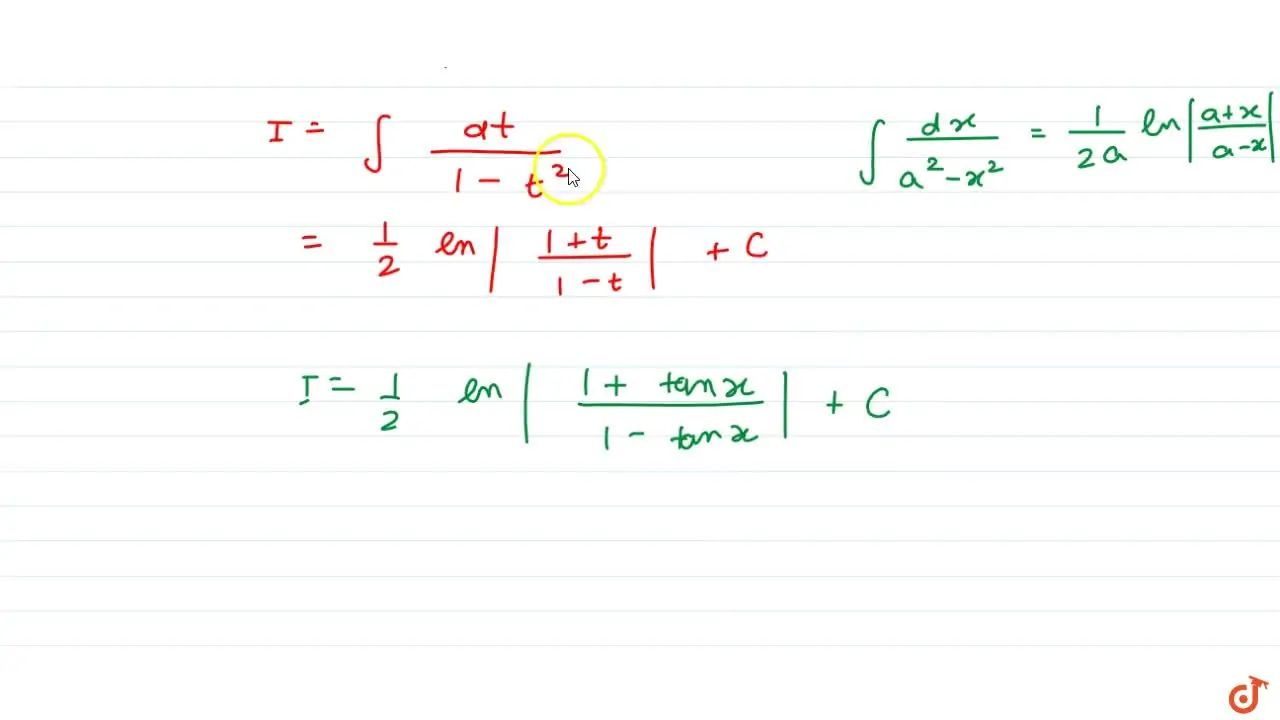 I = ∫ dt / (1 - t²)
∫ dx / (a² - x²) = 1/(2a) ln |(a+x)/(a-x)|
= 1/2 ln |(1+t)/(1-t)| + C
I = 1/2 ln |(1 + tan x)/(1 - tan x)| + C